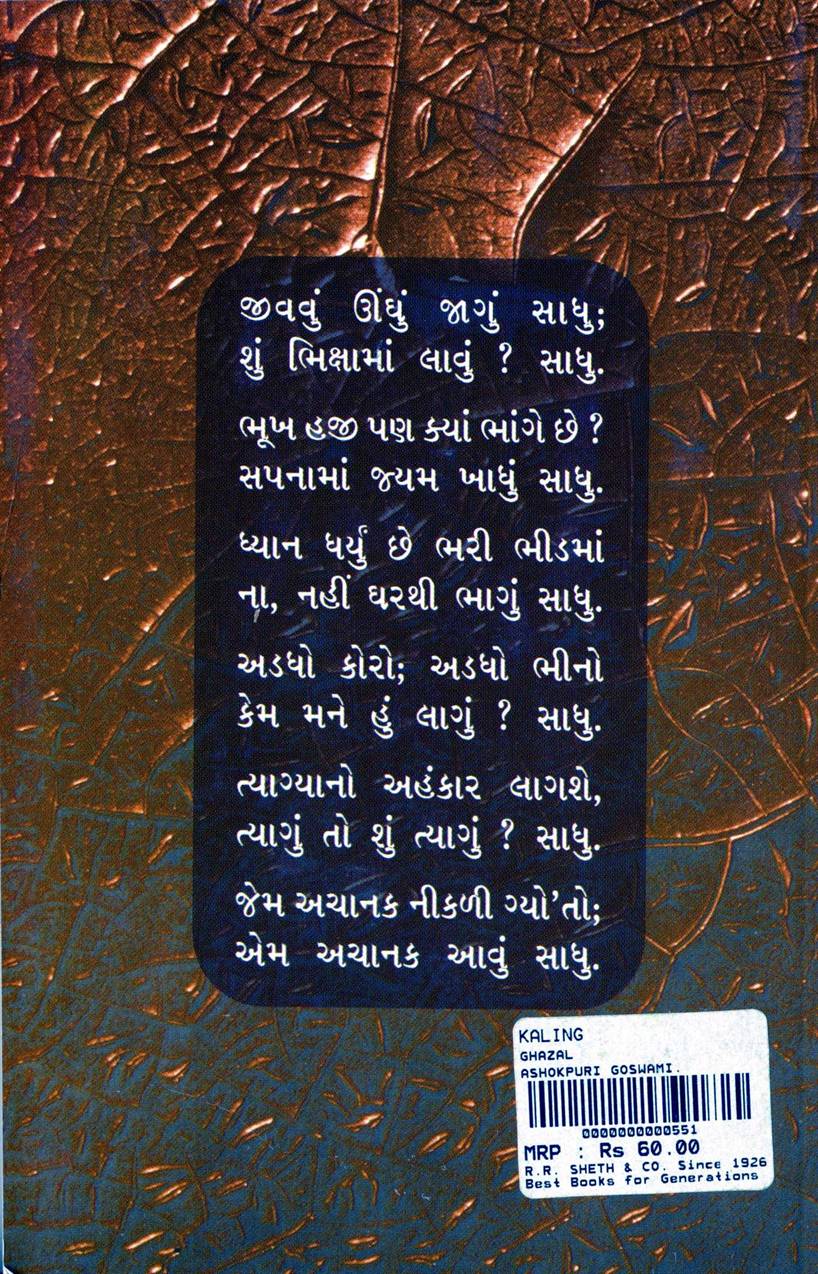 જીવવું ઊંઘું જાગું સાધુ;
શું ભિક્ષામાં લાવું ? સાધુ.
ભૂખ હજી પણ ક્યાં ભાંગે છે ?
સપનામાં જ્યમ ખાધું સાધુ.
ધ્યાન ધર્યું છે ભરી ભીડમાં
ના, નહીં ઘરથી ભાગું સાધુ.
અડધો કોરો; અડધો ભીનો
કેમ મને હું લાગું ? સાધુ.
ત્યાગ્યાનો અહંકાર લાગશે,
ત્યાગું તો શું ત્યાગું ? સાધુ.
જેમ અચાનક નીકળી ગ્યો'તો;
એમ અચાનક આવું સાધુ.
KALING
GHAZAL
ASHOKPURI GOSWAMI.
0000000000551
MRP : Rs 60.00
R.R. SHETH & CO. Since 1926
Best Books for Generations